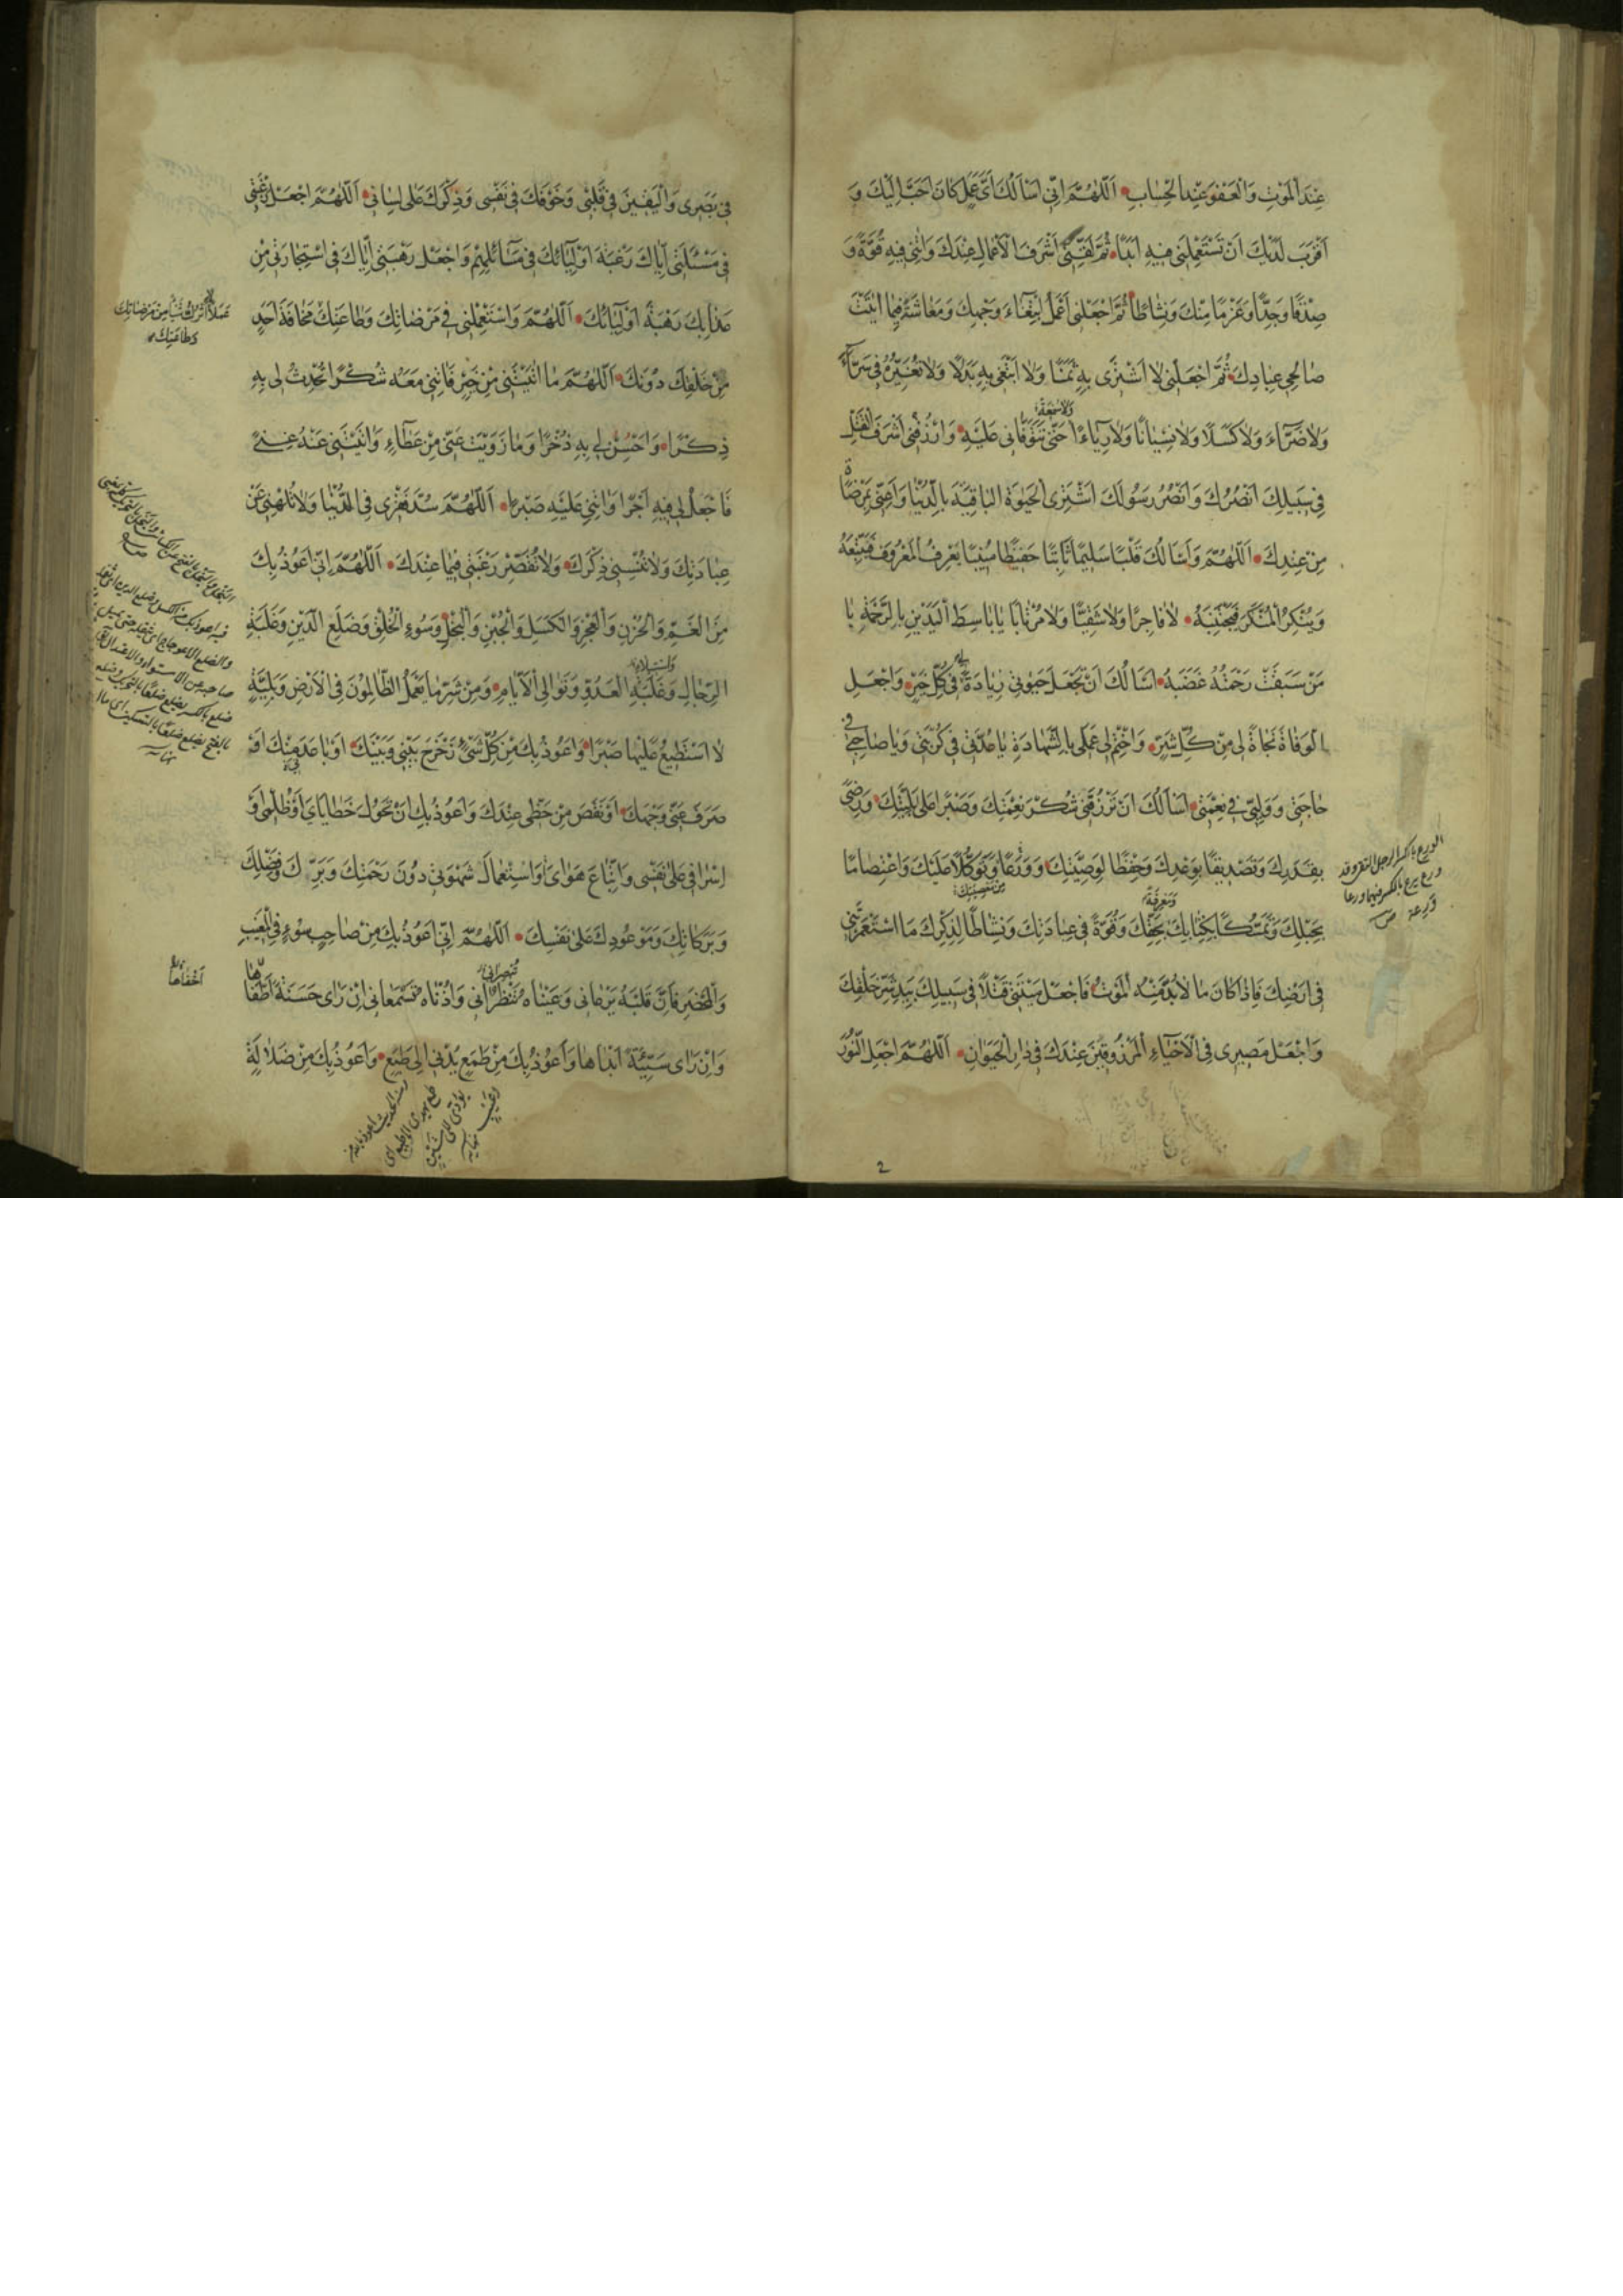 عِنْدَ الْمَوْتِ وَالْعَفْوَ عِنْدَ الْحِسَابِ اَللّٰهُمَّ اِنّى اَسْاَلُكَ اَىَّ عَمَلٍ كَانَ اَحَبَّ اِلَيْكَ وَ
اَقْرَبَ لَدَيْكَ اَنْ تَسْتَعْمِلَنى فيهِ اَبَدًا ثُمَّ لَقِّنّى اَشْرَفَ الْاَعْمالِ عِنْدَكَ وَاٰتِنى فيهِ قُوَّةً وَ
صِدْقًا وَجِدًّا وَعَزْمًا مِنْكَ وَنَشاطًا ثُمَّ اجْعَلْنى اَعْمَلُ ابْتِغٰاءَ وَجْهِكَ وَمَعاشَةً فيما اٰتَيْتَ
صٰالِحى عِبادِكَ ثُمَّ اجْعَلْنى لا اَشْتَرى بِهِ ثَمَنًا وَلا اَبْتَغى بِهِ بَدَلًا وَلا تُغَيِّرْهُ فى سَرّٰاءَ
وَلا ضَرّٰاءَ وَلا كَسَلًا وَلا نِسْيانًا وَلا رِيٰاءً وَلا سُمْعَةً حَتّٰى تَتَوَفّانى عَلَيْهِ وَارْزُقْنى اَشْرَفَ الْقَتْلِ
فى سَبيلِكَ اَنْصُرُكَ وَاَنْصُرُ رَسُولَكَ اَشْتَرِى الْحَيٰوةَ الْباقِيَةَ بِالدُّنْيا وَاَغْنِنى بِمَرْضٰاةٍ
مِنْ عِنْدِكَ اَللّٰهُمَّ وَاَسْاَلُكَ قَلْبًا سَليمًا ثٰابِتًا حَفيظًا مُنيبًا يَعْرِفُ الْمَعْرُوفَ فَيَتَّبِعُهُ
وَيُنْكِرُ الْمُنْكَرَ فَيَجْتَنِبُهُ لا فاجِرًا وَلا شَقِيًّا وَلا مُرْتابًا يٰا بٰاسِطَ الْيَدَيْنِ بِالرَّحْمَةِ يٰا
مَنْ سَبَقَتْ رَحْمَتُهُ غَضَبَهُ اَسْاَلُكَ اَنْ تَجْعَلَ حَيٰوتى زِيٰادَةً لى فى كُلِّ خَيْرٍ وَاجْعَلِ
الْوَفاةَ نَجٰاةً لى مِنْ كُلِّ شَرٍّ وَاخْتِمْ لى عَمَلى بِالشَّهادَةِ يٰا عُدَّتى فى كُرْبَتى وَيٰا صٰاحِبى فى
حٰاجَتى وَوَلِيّى فى نِعْمَتى اَسْاَلُكَ اَنْ تَرْزُقَنى شُكْرَ نِعْمَتِكَ وَصَبْرًا عَلىٰ بَلِيَّتِكَ وَرِضًى
بِقَدَرِكَ وَتَصْديقًا بِوَعْدِكَ وَحِفْظًا لِوَصِيَّتِكَ وَوَرَعًا وَتَوَكُّلًا عَلَيْكَ وَاعْتِصٰامًا
بِحَبْلِكَ وَتَمَسُّكًا بِكِتٰابِكَ وَمَعْرِفَةً بِحَقِّكَ وَقُوَّةً فى عِبادَتِكَ وَنَشاطًا لِذِكْرِكَ مَا اسْتَعْمَرْتَنى
فى اَرْضِكَ فَاِذٰا كانَ مٰا لا بُدَّ مِنْهُ الْمَوْتُ فَاجْعَلْ ميتَتى قَتْلًا فى سَبيلِكَ بِيَدِ شَرِّ خَلْقِكَ
وَاجْعَلْ مَصيرى فِى الْاَحْيٰاءِ الْمَرْزُوقينَ عِنْدَكَ فى دٰارِ الْحَيَوٰانِ اَللّٰهُمَّ اجْعَلِ النُّورَ
2
فى بَصَرى وَالْيَقينَ فى قَلْبى وَخَوْفَكَ فى نَفْسى وَذِكْرَكَ عَلىٰ لِسٰانى اَللّٰهُمَّ اجْعَلْ رَغْبَتى
فى مَسْئَلَتى اِيّٰاكَ رَغْبَةَ اَوْلِيٰائِكَ فى مَسٰائِلِهِمْ وَاجْعَلْ رَهْبَتى اِيّٰاكَ فِى اسْتِجارَتى مِنْ
عَذٰابِكَ رَهْبَةَ اَوْلِيٰائِكَ اَللّٰهُمَّ وَاسْتَعْمِلْنى فى مَرْضاتِكَ وَطٰاعَتِكَ مَخٰافَةَ اَحَدٍ
عَمَلًا لا اَتْرُكُ شَيْئًا مِنْ مَرْضاتِكَ
وَطٰاعَتِكَ
مِنْ خَلْقِكَ دُونَكَ اَللّٰهُمَّ مٰا اٰتَيْتَنى مِنْ خَيْرٍ فَاٰتِنى مَعَهُ شُكْرًا تُحْدِثُ لى بِهِ
ذِكْرًا وَاَحْسِنْ لى بِهِ ذُخْرًا وَمٰا زَوَيْتَ عَنّى مِنْ عَطٰاءٍ وَاٰتَيْتَنى عَنْهُ غِنًى
فَاجْعَلْ لى فيهِ اَجْرًا وَاٰتِنى عَلَيْهِ صَبْرًا اَللّٰهُمَّ سُدَّ فَقْرى فِى الدُّنْيٰا وَلا تُلْهِنى عَنْ
عِبٰادَتِكَ وَلا تُنْسِنى ذِكْرَكَ وَلا تُقَصِّرْ رَغْبَتى فيمٰا عِنْدَكَ اَللّٰهُمَّ اِنّى اَعُوذُ بِكَ
مِنَ الْغَمِّ وَالْحُزْنِ وَالْعَجْزِ وَالْكَسَلِ وَالْجُبْنِ وَالْبُخْلِ وَسُوءِ الْخُلُقِ وَضَلَعِ الدَّيْنِ وَغَلَبَةِ
الرِّجٰالِ وَغَلَبَةِ الْعَدُوِّ وَتَوٰالِى الْاَيّٰامِ وَمِنْ شَرِّ مٰا يَعْمَلُ الظّٰالِمُونَ فِى الْاَرْضِ وَبَلِيَّةٍ
لا اَسْتَطيعُ عَلَيْهٰا صَبْرًا وَاَعُوذُ بِكَ مِنْ كُلِّ شَىْءٍ زَحْزَحَ بَيْنى وَبَيْنَكَ اَوْ بٰاعَدَ مِنْكَ اَوْ
صَرَفَ عَنّى وَجْهَكَ اَوْ نَقَصَ مِنْ حَظّى عِنْدَكَ وَاَعُوذُ بِكَ اَنْ تَحُولَ خَطٰايٰاىَ اَوْ ظُلْمى اَوْ
اِسْرٰافى عَلىٰ نَفْسى وَاتِّبٰاعَ هَوٰاىَ وَاسْتِعْمٰالَ شَهْوَتى دُونَ رَحْمَتِكَ وَبَرِّكَ وَفَضْلِكَ
وَبَرَكٰاتِكَ وَمَوْعُودِكَ عَلىٰ نَفْسِكَ اَللّٰهُمَّ اِنّى اَعُوذُ بِكَ مِنْ صٰاحِبِ سُوءٍ فِى الْمَغيبِ
وَالْمَحْضَرِ فَاِنَّ قَلْبَهُ يَرْعٰانى وَعَيْنٰاهُ تَنْظُرٰانى وَاُذُنٰاهُ تَسْمَعٰانى اِنْ رَاٰى حَسَنَةً اَطْفَاَهٰا
اَخْفٰاهٰا
وَاِنْ رَاٰى سَيِّئَةً اَبْدٰاهٰا وَاَعُوذُ بِكَ مِنْ طَمَعٍ يُدْنى اِلىٰ طَبَعٍ وَاَعُوذُ بِكَ مِنْ ضَلٰالَةٍ